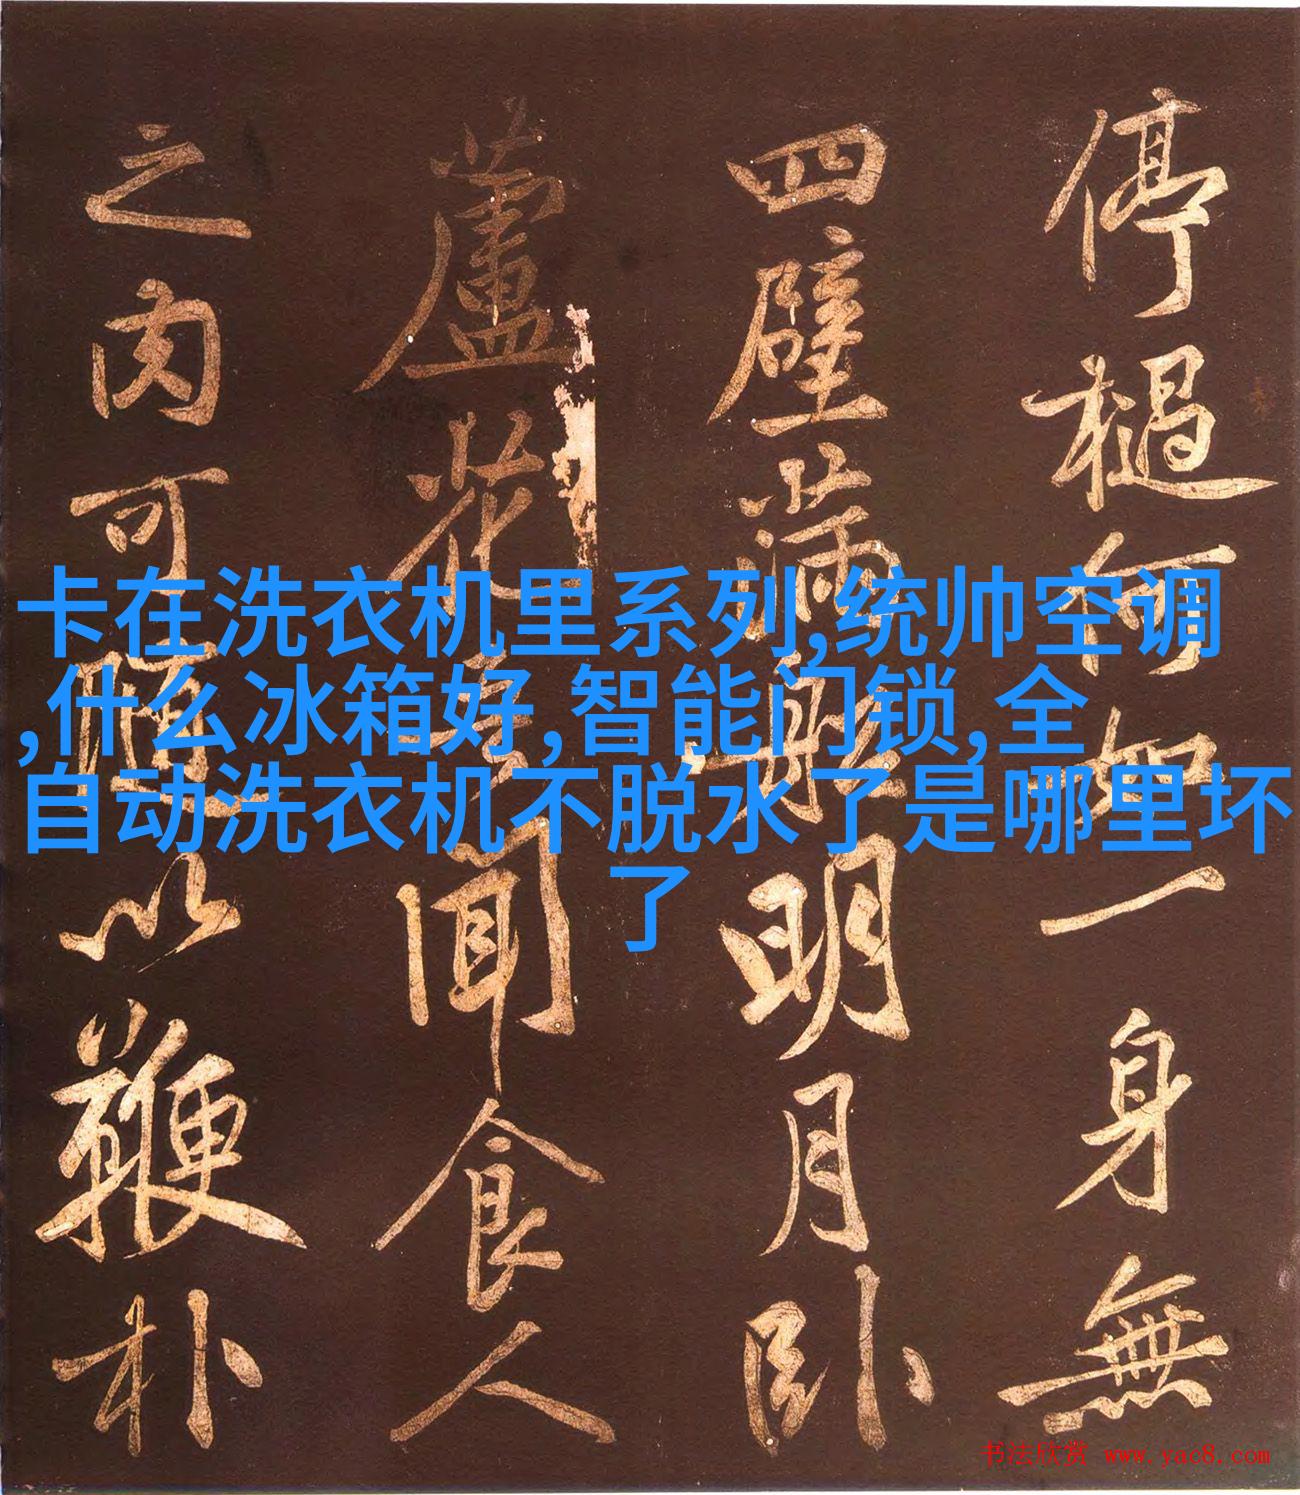 停檛何如一身無
四壁滿船明月臥
蘆花吾聞食人
之肉可隨以鞭朴
卡在洗衣机里系列,统帅空调
,什么冰箱好,智能门锁,全
自动洗衣机不脱水了是哪里坏
了
书法欣赏 www.yac8.com